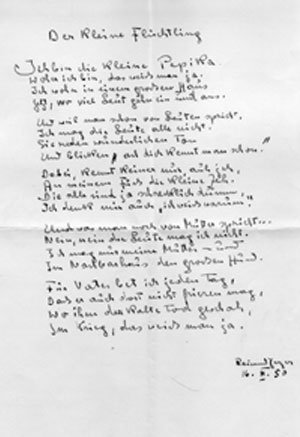 Der kleine Flüchtling
Ich bin die kleine Pepika.
Wo ich bin, das weiss man ja.
Ich wohn in einem grossen Haus
wo viel Leut gehn ein und aus.
Und weil man schon von Leuten spricht,
Ich mag die Leute alle nicht.
Sie reden wunderlichen Ton
Und blicken: "ach dich kennt man schon."
Dabei, kennt keiner mich, auch ich,
An meinem Tisch die kleine
Die alle sind ja schrecklich dumm,
Ich denk mir auch, ich weiss warum
Und was man noch von Mutter spricht...
Nein, nein die Leute mag ich nicht.
Ich mag nur meine Mutter - und
Im Nachbarhaus den grossen Hund.
Für Vater bet ich jeden Tag,
Dass er auch dort nicht frieren mag,
Wo ihm der kalte Tod geschah,
Im Krieg, das weiss man ja.
16. 50